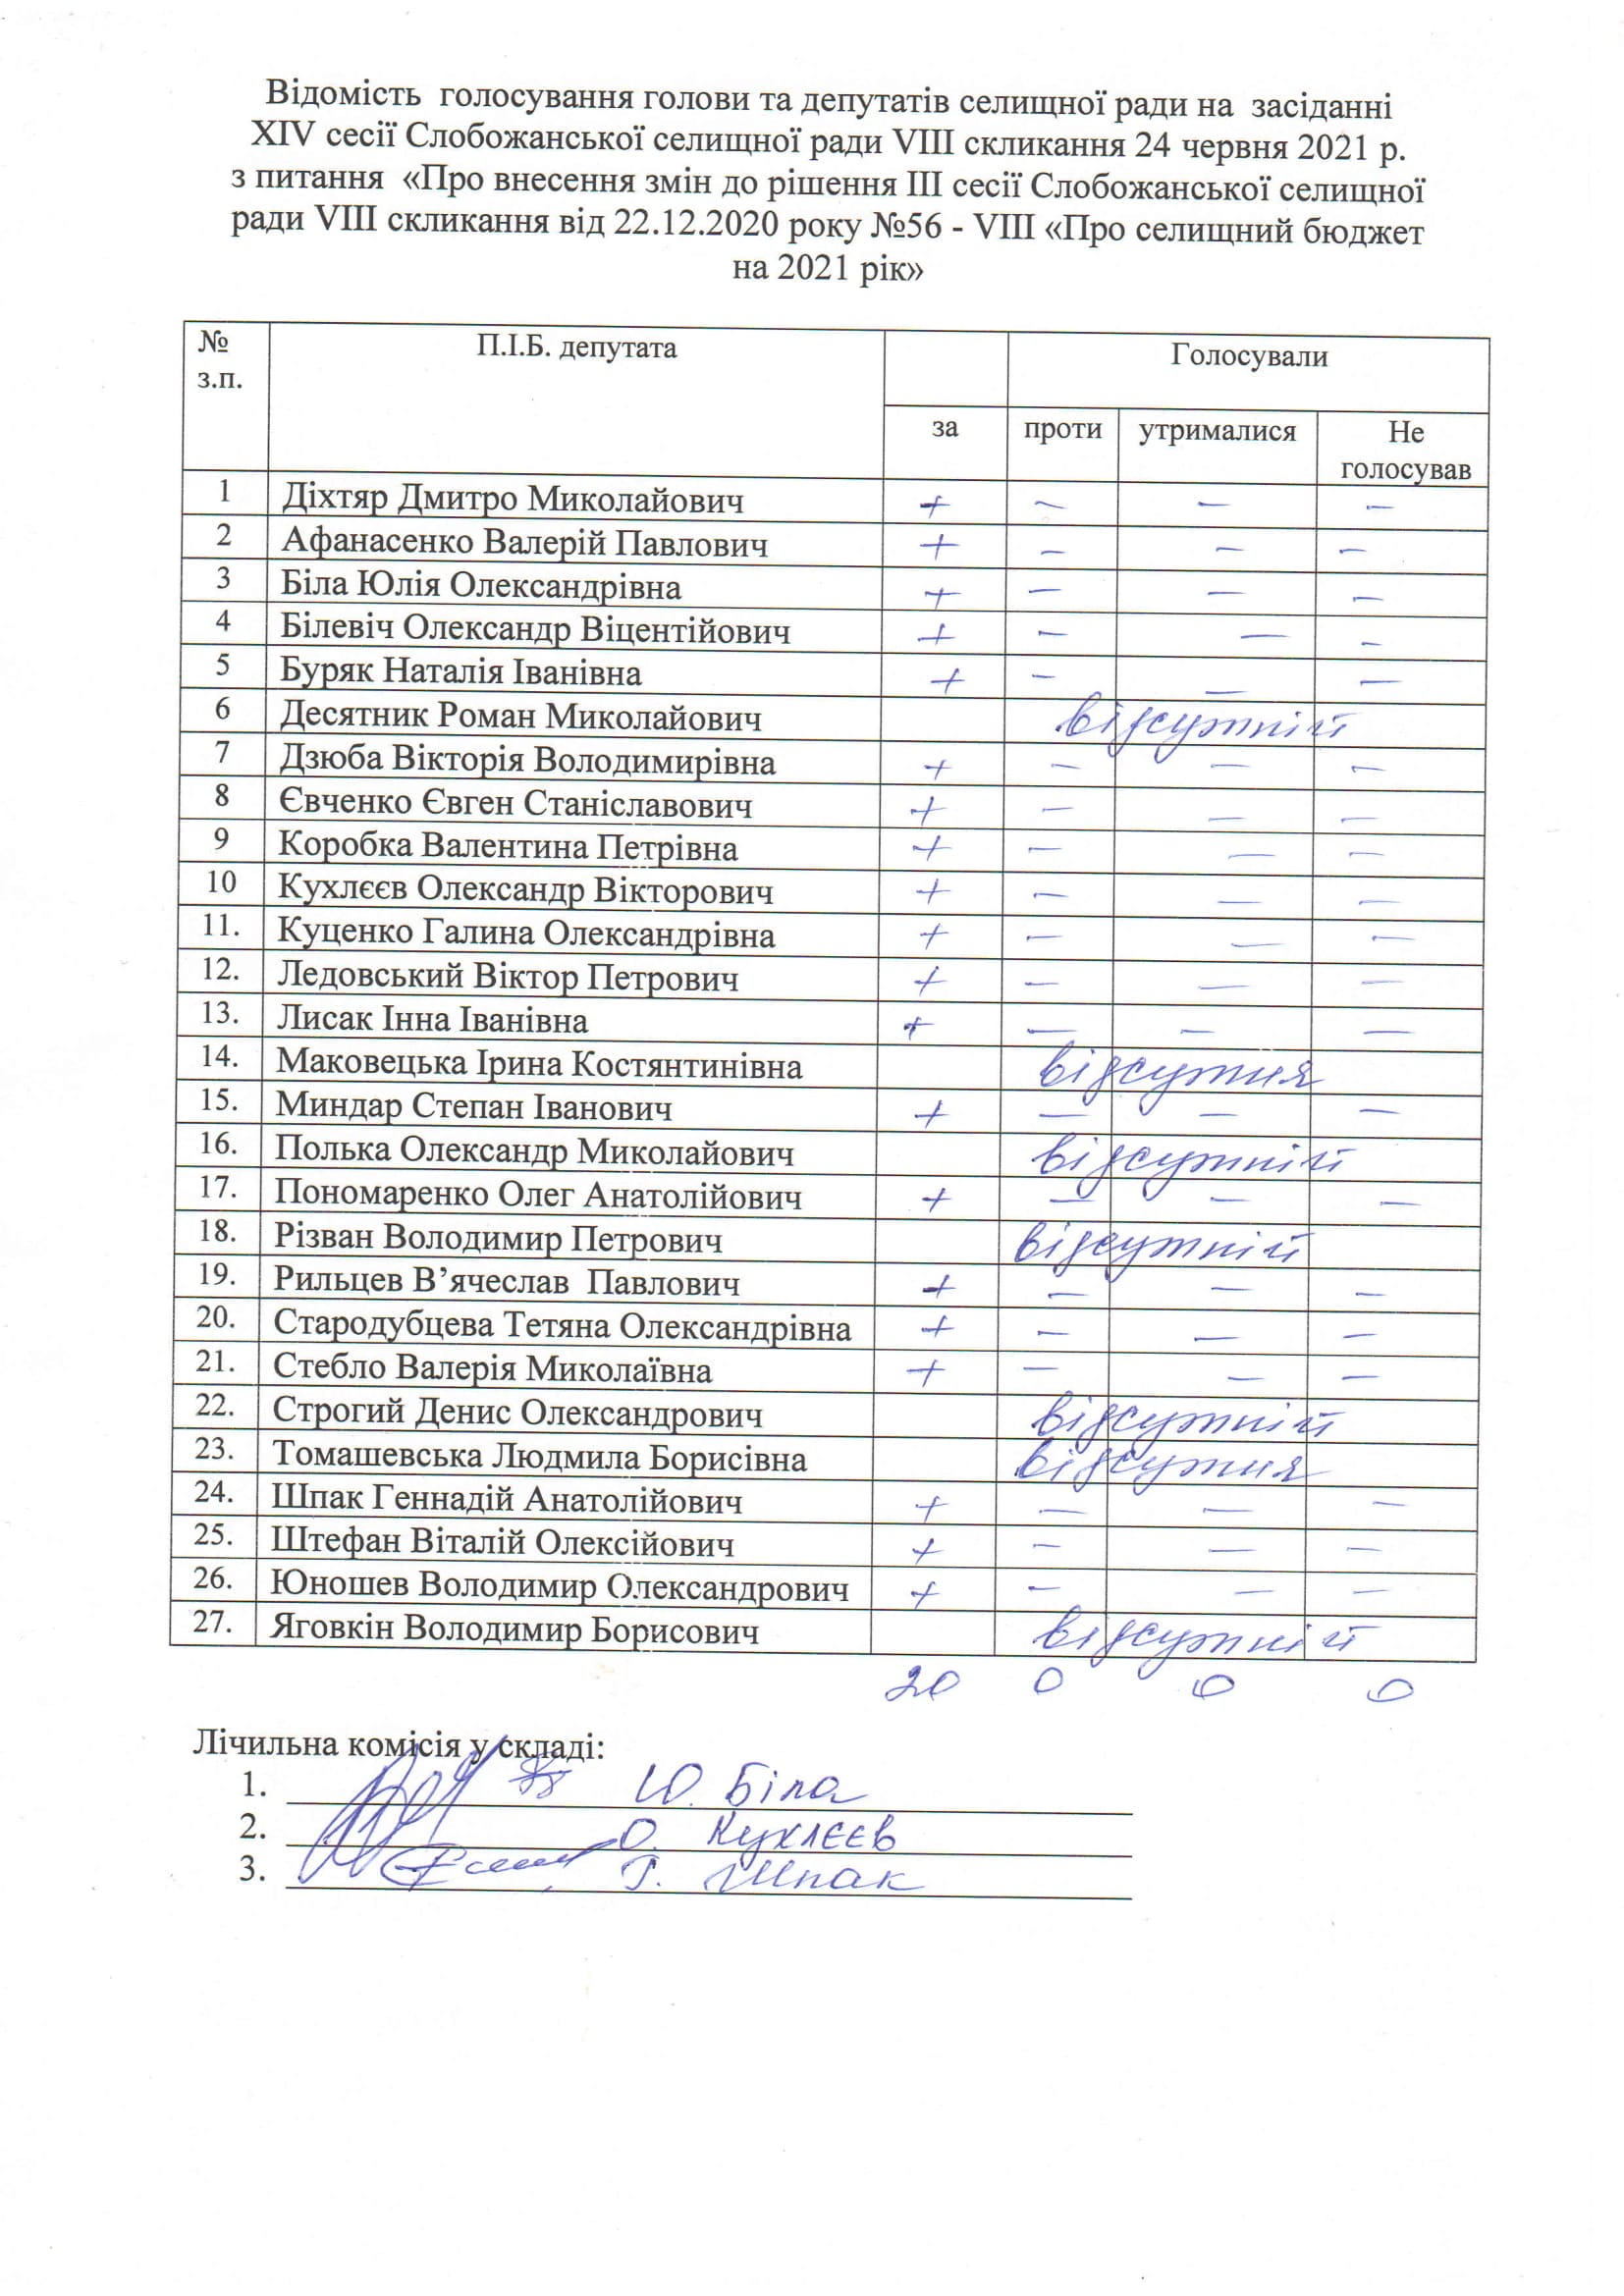 Відомість голосування голови та депутатів селищної ради на засіданні
XIV сесії Слобожанської селищної ради VIII скликання 24 червня 2021 р.
з питання «Про внесення змін до рішення III сесії Слобожанської селищної
ради VIII скликання від 22.12.2020 року №56 - VIII «Про селищний бюджет
на 2021 рік»
№ з.п. П.І.Б. депутата Голосували
за проти утрималися Не голосував
1 Діхтяр Дмитро Миколайович + – – –
2 Афанасенко Валерій Павлович + – – –
3 Біла Юлія Олександрівна + – – –
4 Білевіч Олександр Віцентійович + – – –
5 Буряк Наталія Іванівна + – – –
6 Десятник Роман Миколайович відсутній
7 Дзюба Вікторія Володимирівна + – – –
8 Євченко Євген Станіславович + – – –
9 Коробка Валентина Петрівна + – – –
10 Кухлєєв Олександр Вікторович + – – –
11. Куценко Галина Олександрівна + – – –
12. Ледовський Віктор Петрович + – – –
13. Лисак Інна Іванівна + – – –
14. Маковецька Ірина Костянтинівна відсутня
15. Миндар Степан Іванович + – – –
16. Полька Олександр Миколайович відсутній
17. Пономаренко Олег Анатолійович + – – –
18. Різван Володимир Петрович відсутній
19. Рильцев В’ячеслав Павлович + – – –
20. Стародубцева Тетяна Олександрівна + – – –
21. Стебло Валерія Миколаївна + – – –
22. Строгий Денис Олександрович відсутній
23. Томашевська Людмила Борисівна відсутня
24. Шпак Геннадій Анатолійович + – – –
25. Штефан Віталій Олексійович + – – –
26. Юношев Володимир Олександрович + – – –
27. Яговкін Володимир Борисович відсутній
20 0 0 0
Лічильна комісія у складі:
1. Ю. Біла
2. О. Кухлєєв
3. Г. Шпак